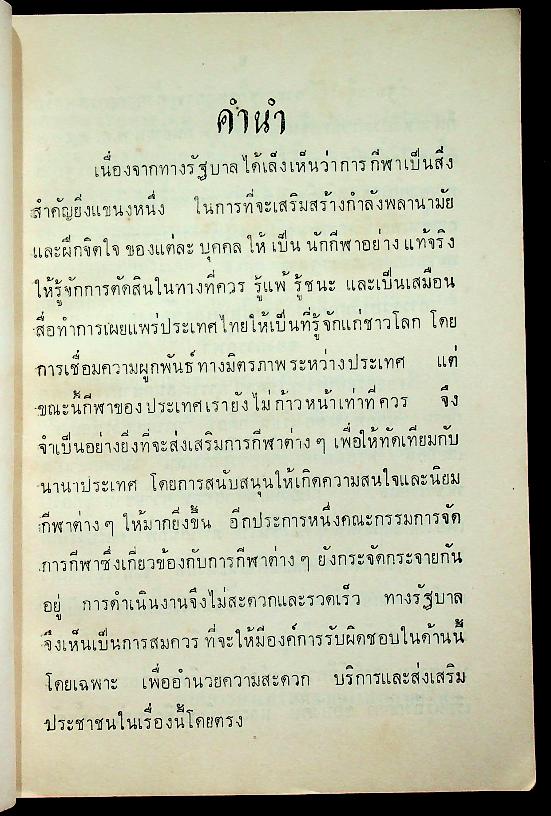 คำนำ
เนื่องจากทางรัฐบาลได้เล็งเห็นว่าการกีฬาเป็นสิ่ง
สำคัญยิ่งแขนงหนึ่ง ในการที่จะเสริมสร้างกำลังพลานามัย
และฝึกจิตใจ ของแต่ละ บุคคล ให้ เป็น นักกีฬาอย่าง แท้จริง
ให้รู้จักการตัดสินในทางที่ควร รู้แพ้ รู้ชนะ และเป็นเสมือน
สื่อทำการเผยแพร่ประเทศไทยให้เป็นที่รู้จักแก่ชาวโลก โดย
การเชื่อมความผูกพันธ์ทางมิตรภาพระหว่างประเทศ แต่
ขณะนี้กีฬาของ ประเทศเรายังไม่ก้าวหน้าเท่าที่ควร จึง
จำเป็นอย่างยิ่งที่จะส่งเสริมการกีฬาต่าง ๆ เพื่อให้ทัดเทียมกับ
นานาประเทศ โดยการสนับสนุนให้เกิดความสนใจและนิยม
กีฬาต่าง ๆ ให้มากยิ่งขึ้น อีกประการหนึ่งคณะกรรมการจัด
การกีฬาซึ่งเกี่ยวข้องกับการกีฬาต่าง ๆ ยังกระจัดกระจายกัน
อยู่ การดำเนินงานจึงไม่สะดวกและรวดเร็ว ทางรัฐบาล
จึงเห็นเป็นการสมควร ที่จะให้มีองค์การรับผิดชอบในด้านนี้
โดยเฉพาะ เพื่ออำนวยความสะดวก บริการและส่งเสริม
ประชาชนในเรื่องนี้โดยตรง